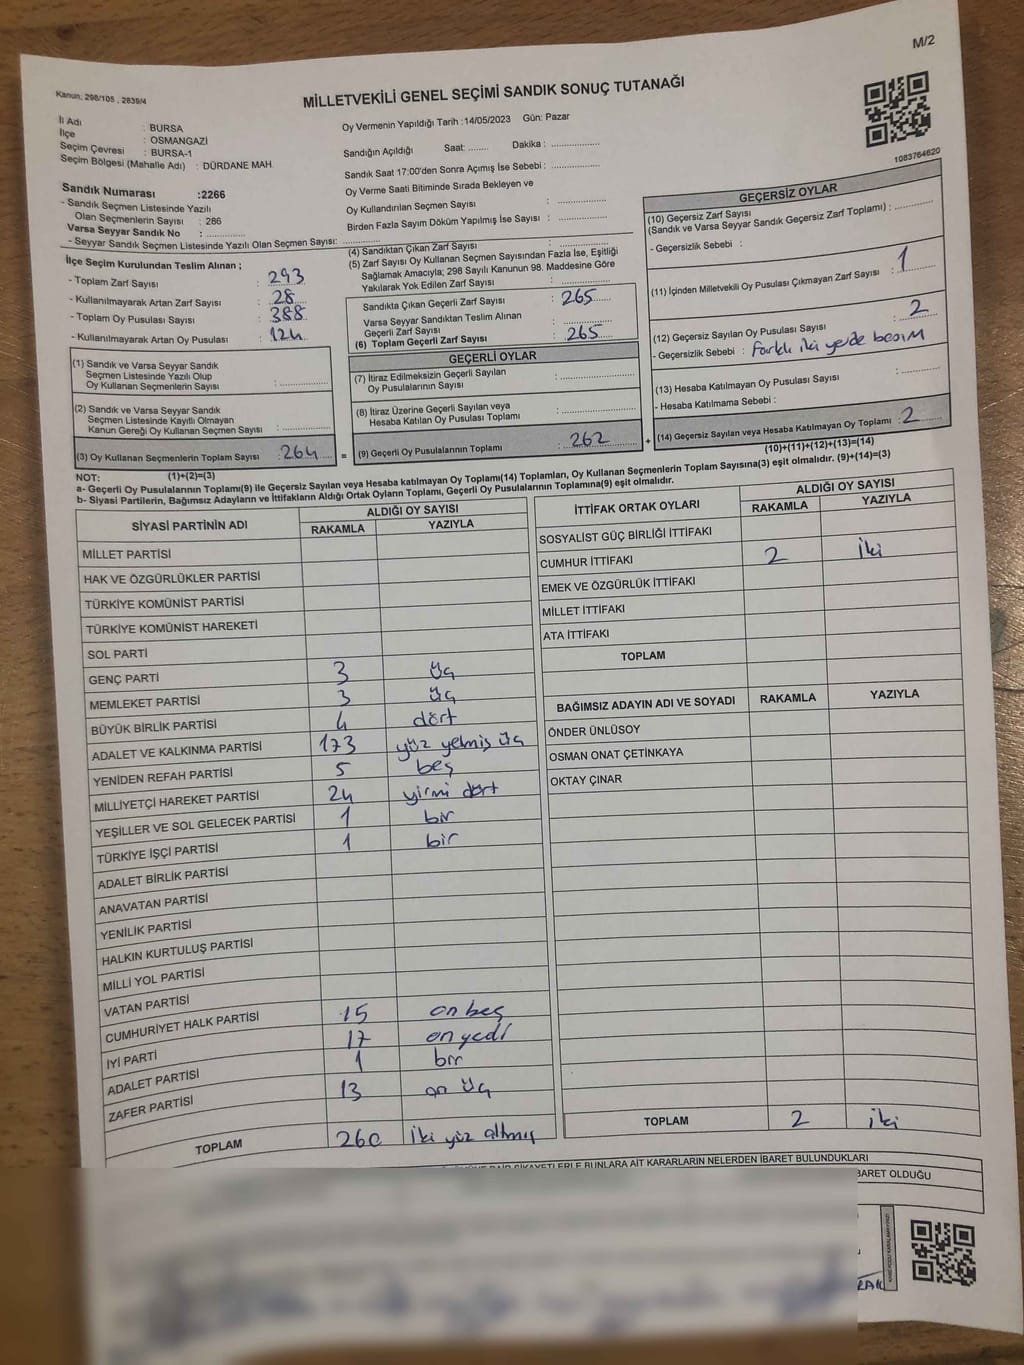 M/2
Kanun, 298/105 , 2839/4
MİLLETVEKİLİ GENEL SEÇİMİ SANDIK SONUÇ TUTANAĞI
İl Adı : BURSA
İlçe : OSMANGAZİ
Seçim Çevresi : BURSA-1
Seçim Bölgesi (Mahalle Adı) : DÜRDANE MAH.
Sandık Numarası :2266
- Sandık Seçmen Listesinde Yazılı
Olan Seçmenlerin Sayısı : 286
Varsa Seyyar Sandık No :
- Seyyar Sandık Seçmen Listesinde Yazılı Olan Seçmen Sayısı:
Oy Vermenin Yapıldığı Tarih :14/05/2023 Gün: Pazar
Sandığın Açıldığı Saat: ........ Dakika : ..................
Sandık Saat 17:00'den Sonra Açımış İse Sebebi : ..................
Oy Verme Saati Bitiminde Sırada Bekleyen ve
Oy Kullandırılan Seçmen Sayısı : ..................
Birden Fazla Sayım Döküm Yapılmış İse Sayısı : ..................
1083764620
İlçe Seçim Kurulundan Teslim Alınan ;
- Toplam Zarf Sayısı : 293
- Kullanılmayarak Artan Zarf Sayısı : 28
- Toplam Oy Pusulası Sayısı : 388
- Kullanılmayarak Artan Oy Pusulası : 124
(1) Sandık ve Varsa Seyyar Sandık
Seçmen Listesinde Yazılı Olup
Oy Kullanan Seçmenlerin Sayısı : ..................
(2) Sandık ve Varsa Seyyar Sandık
Seçmen Listesinde Kayıtlı Olmayan
Kanun Gereği Oy Kullanan Seçmen Sayısı : ..................
(3) Oy Kullanan Seçmenlerin Toplam Sayısı : 264
(4) Sandıktan Çıkan Zarf Sayısı : ..................
(5) Zarf Sayısı Oy Kullanan Seçmen Sayısından Fazla İse, Eşitliği
Sağlamak Amacıyla; 298 Sayılı Kanunun 98. Maddesine Göre
Yakılarak Yok Edilen Zarf Sayısı : ..................
Sandıkta Çıkan Geçerli Zarf Sayısı : 265
Varsa Seyyar Sandıktan Teslim Alınan
Geçerli Zarf Sayısı : ..................
(6) Toplam Geçerli Zarf Sayısı : 265
GEÇERLİ OYLAR
(7) İtiraz Edilmeksizin Geçerli Sayılan
Oy Pusulalarının Sayısı : ..................
(8) İtiraz Üzerine Geçerli Sayılan veya
Hesaba Katılan Oy Pusulası Toplamı : ..................
= (9) Geçerli Oy Pusulalarının Toplamı : 262
GEÇERSİZ OYLAR
(10) Geçersiz Zarf Sayısı
(Sandık ve Varsa Seyyar Sandık Geçersiz Zarf Toplamı) : ............
- Geçersizlik Sebebi :
(11) İçinden Milletvekili Oy Pusulası Çıkmayan Zarf Sayısı : 1
(12) Geçersiz Sayılan Oy Pusulası Sayısı : 2
- Geçersizlik Sebebi : Farklı iki yerde basım
(13) Hesaba Katılmayan Oy Pusulası Sayısı : ............
- Hesaba Katılmama Sebebi :
+ (14) Geçersiz Sayılan veya Hesaba Katılmayan Oy Toplamı : 2
(10)+(11)+(12)+(13)=(14)
NOT: (1)+(2)=(3)
a- Geçerli Oy Pusulalarının Toplamı(9) ile Geçersiz Sayılan veya Hesaba katılmayan Oy Toplamı(14) Toplamları, Oy Kullanan Seçmenlerin Toplam Sayısına(3) eşit olmalıdır. (9)+(14)=(3)
b- Siyasi Partilerin, Bağımsız Adayların ve İttifakların Aldığı Ortak Oyların Toplamı, Geçerli Oy Pusulalarının Toplamına(9) eşit olmalıdır.
SİYASİ PARTİNİN ADI ALDIĞI OY SAYISI
RAKAMLA YAZIYLA
MİLLET PARTİSİ
HAK VE ÖZGÜRLÜKLER PARTİSİ
TÜRKİYE KOMÜNİST PARTİSİ
TÜRKİYE KOMÜNİST HAREKETİ
SOL PARTİ
GENÇ PARTİ 3 üç
MEMLEKET PARTİSİ 3 üç
BÜYÜK BİRLİK PARTİSİ 4 dört
ADALET VE KALKINMA PARTİSİ 173 yüz yetmiş üç
YENİDEN REFAH PARTİSİ 5 beş
MİLLİYETÇİ HAREKET PARTİSİ 24 yirmi dört
YEŞİLLER VE SOL GELECEK PARTİSİ 1 bir
TÜRKİYE İŞÇİ PARTİSİ 1 bir
ADALET BİRLİK PARTİSİ
ANAVATAN PARTİSİ
YENİLİK PARTİSİ
HALKIN KURTULUŞ PARTİSİ
MİLLİ YOL PARTİSİ
VATAN PARTİSİ
CUMHURİYET HALK PARTİSİ 15 on beş
İYİ PARTİ 17 on yedi
ADALET PARTİSİ 1 bir
ZAFER PARTİSİ 13 on üç
TOPLAM 260 iki yüz altmış
İTTİFAK ORTAK OYLARI ALDIĞI OY SAYISI
RAKAMLA YAZIYLA
SOSYALİST GÜÇ BİRLİĞİ İTTİFAKI
CUMHUR İTTİFAKI 2 iki
EMEK VE ÖZGÜRLÜK İTTİFAKI
MİLLET İTTİFAKI
ATA İTTİFAKI
TOPLAM
BAĞIMSIZ ADAYIN ADI VE SOYADI RAKAMLA YAZIYLA
ÖNDER ÜNLÜSOY
OSMAN ONAT ÇETİNKAYA
OKTAY ÇINAR
TOPLAM 2 iki
ŞİKAYETLERLE BUNLARA AİT KARARLARIN NELERDEN İBARET BULUNDUKLARI
BARET OLDUĞU